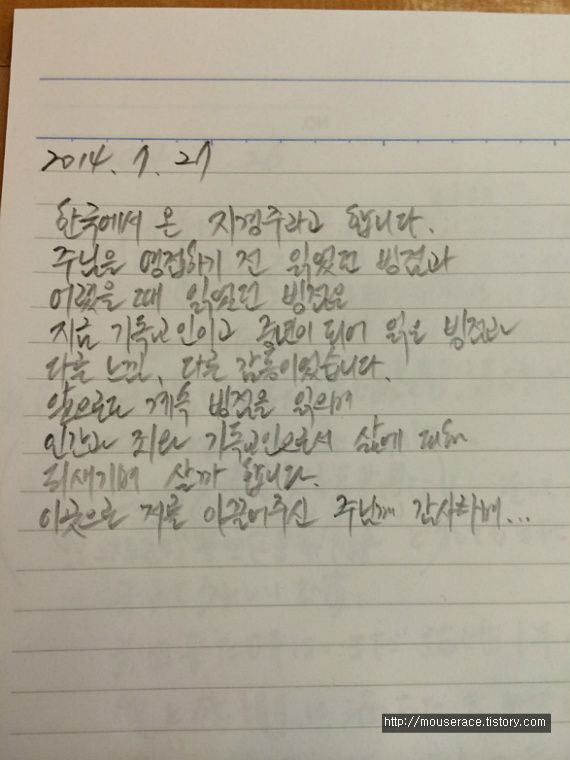 2014. 7. 27
한국에서 온 지경주라고 합니다.
주님을 영접하기 전 읽었던 빙점과
어렸을 때 읽었던 빙점은
지금 기독교인이고 중년이 되어 읽은 빙점과
다른 느낌, 다른 감동이었습니다.
앞으로도 계속 빙점을 읽으며
인간과 죄와 기독교인으로서 삶에 대해
되새기며 살까 합니다.
이곳으로 저를 이끌어주신 주님께 감사하며...
http://mouserace.tistory.com